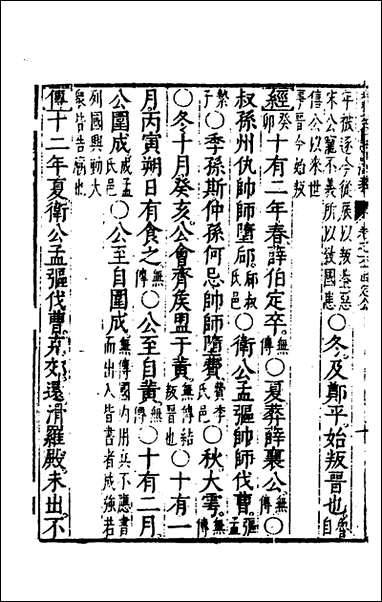 年彼逐今復辰以叛甚惡
宋公寵不義所以致國患○冬及鄭平始叛晉也魯自
僖公以來世
晉今始叛
經癸卯十有二年春薛伯定卒無傳○夏葬薛襄公無傳○
叔孫州仇帥師墮郈郈叔氏邑○衛公孟彄帥師伐曹彄孟
縶子○季孫斯仲孫何忌帥師墮費費季氏邑○秋大雩無傳
○冬十月癸亥公會齊侯盟于黃無傳結叛晉也○十有一
月丙寅朔日有食之無傳○公至自黃無傳○十有二月
公圍成成孟氏邑○公至自圍成無傳國内用兵不應書而出入皆書者成強若
列國興動大衆皆告廟也
傳十二年夏衛公孟彄伐曹克郊還滑羅殿未出不